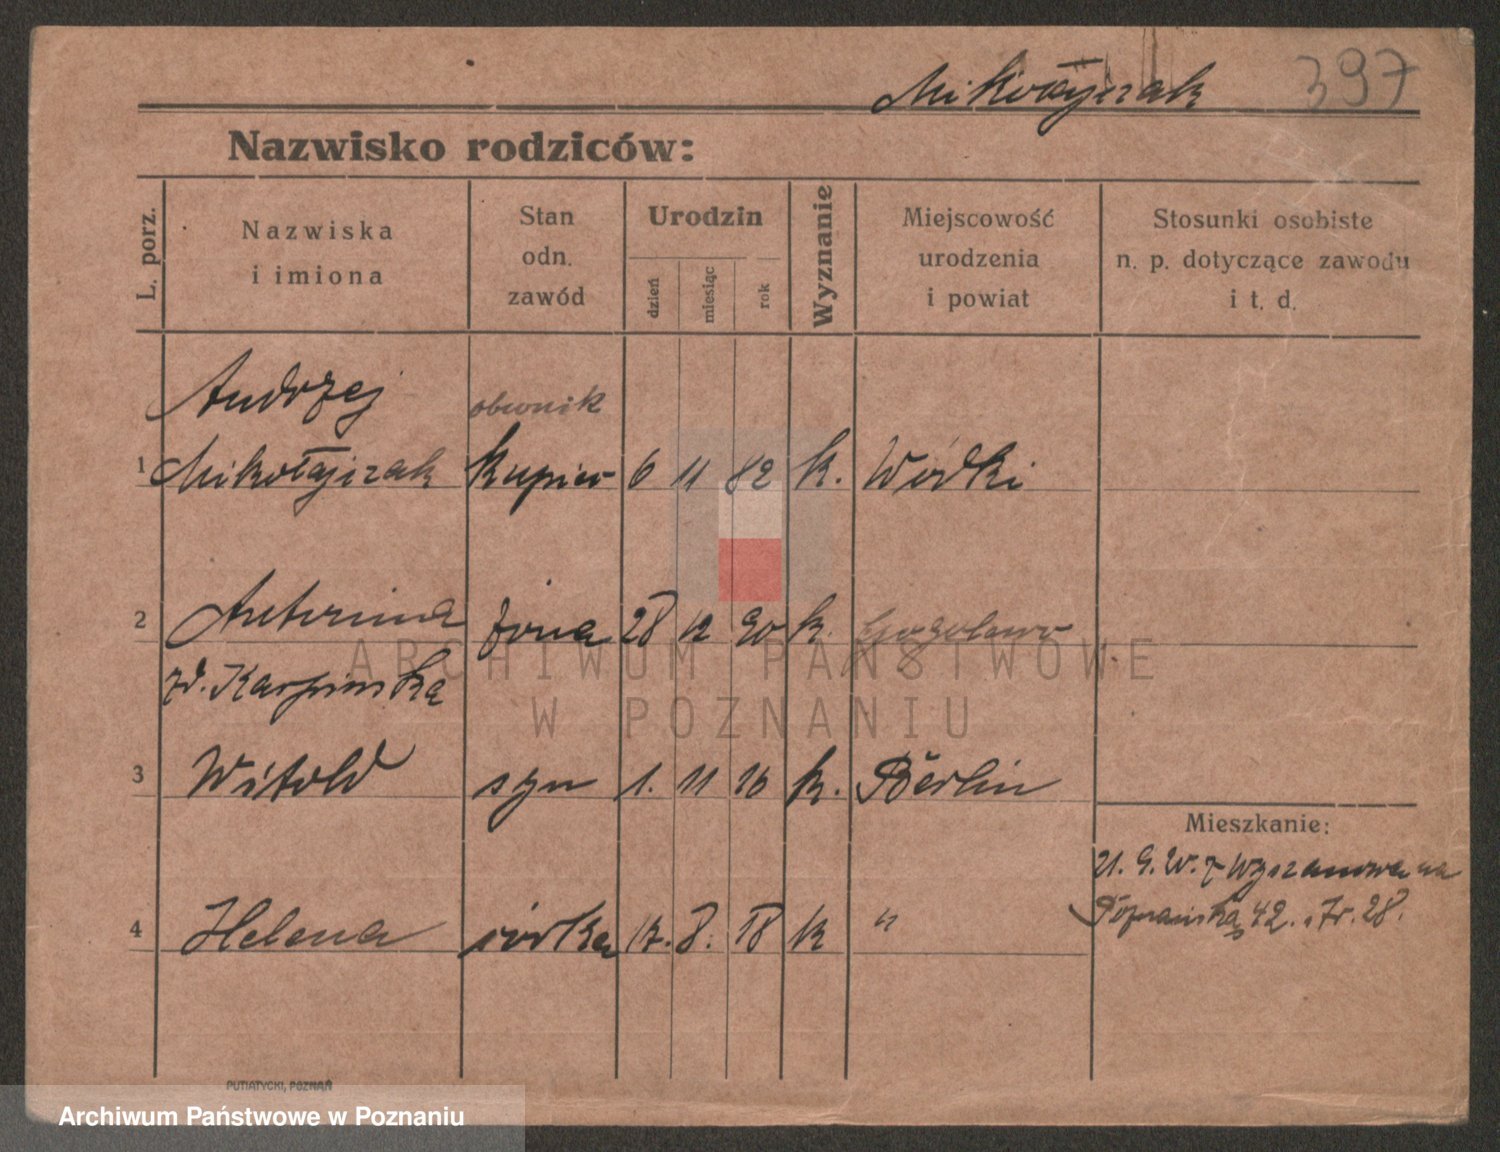 Mikołajczak 397
Nazwisko rodziców:
L. porz.
Nazwiska
i imiona
Stan
odn.
zawód
Urodzin
dzień
miesiąc
rok
Wyznanie
Miejscowość
urodzenia
i powiat
Stosunki osobiste
n. p. dotyczące zawodu
i t. d.
Andrzej
1 Mikołajczak kupiec 6 11 82 k. Wódki
2 Antonina żona 28 12 90 k. Gogolewo
zd. Karpińska
3 Witold syn 1. 11 16 k. Berlin
Mieszkanie:
U. G. W. z Wyszanowa na
4 Helena córka 17. 8. 18 k "
Poznańska 42. 28.
ARCHIWUM PAŃSTWOWE
W POZNANIU
PUTIATYCKI, POZNAŃ
Archiwum Państwowe w Poznaniu